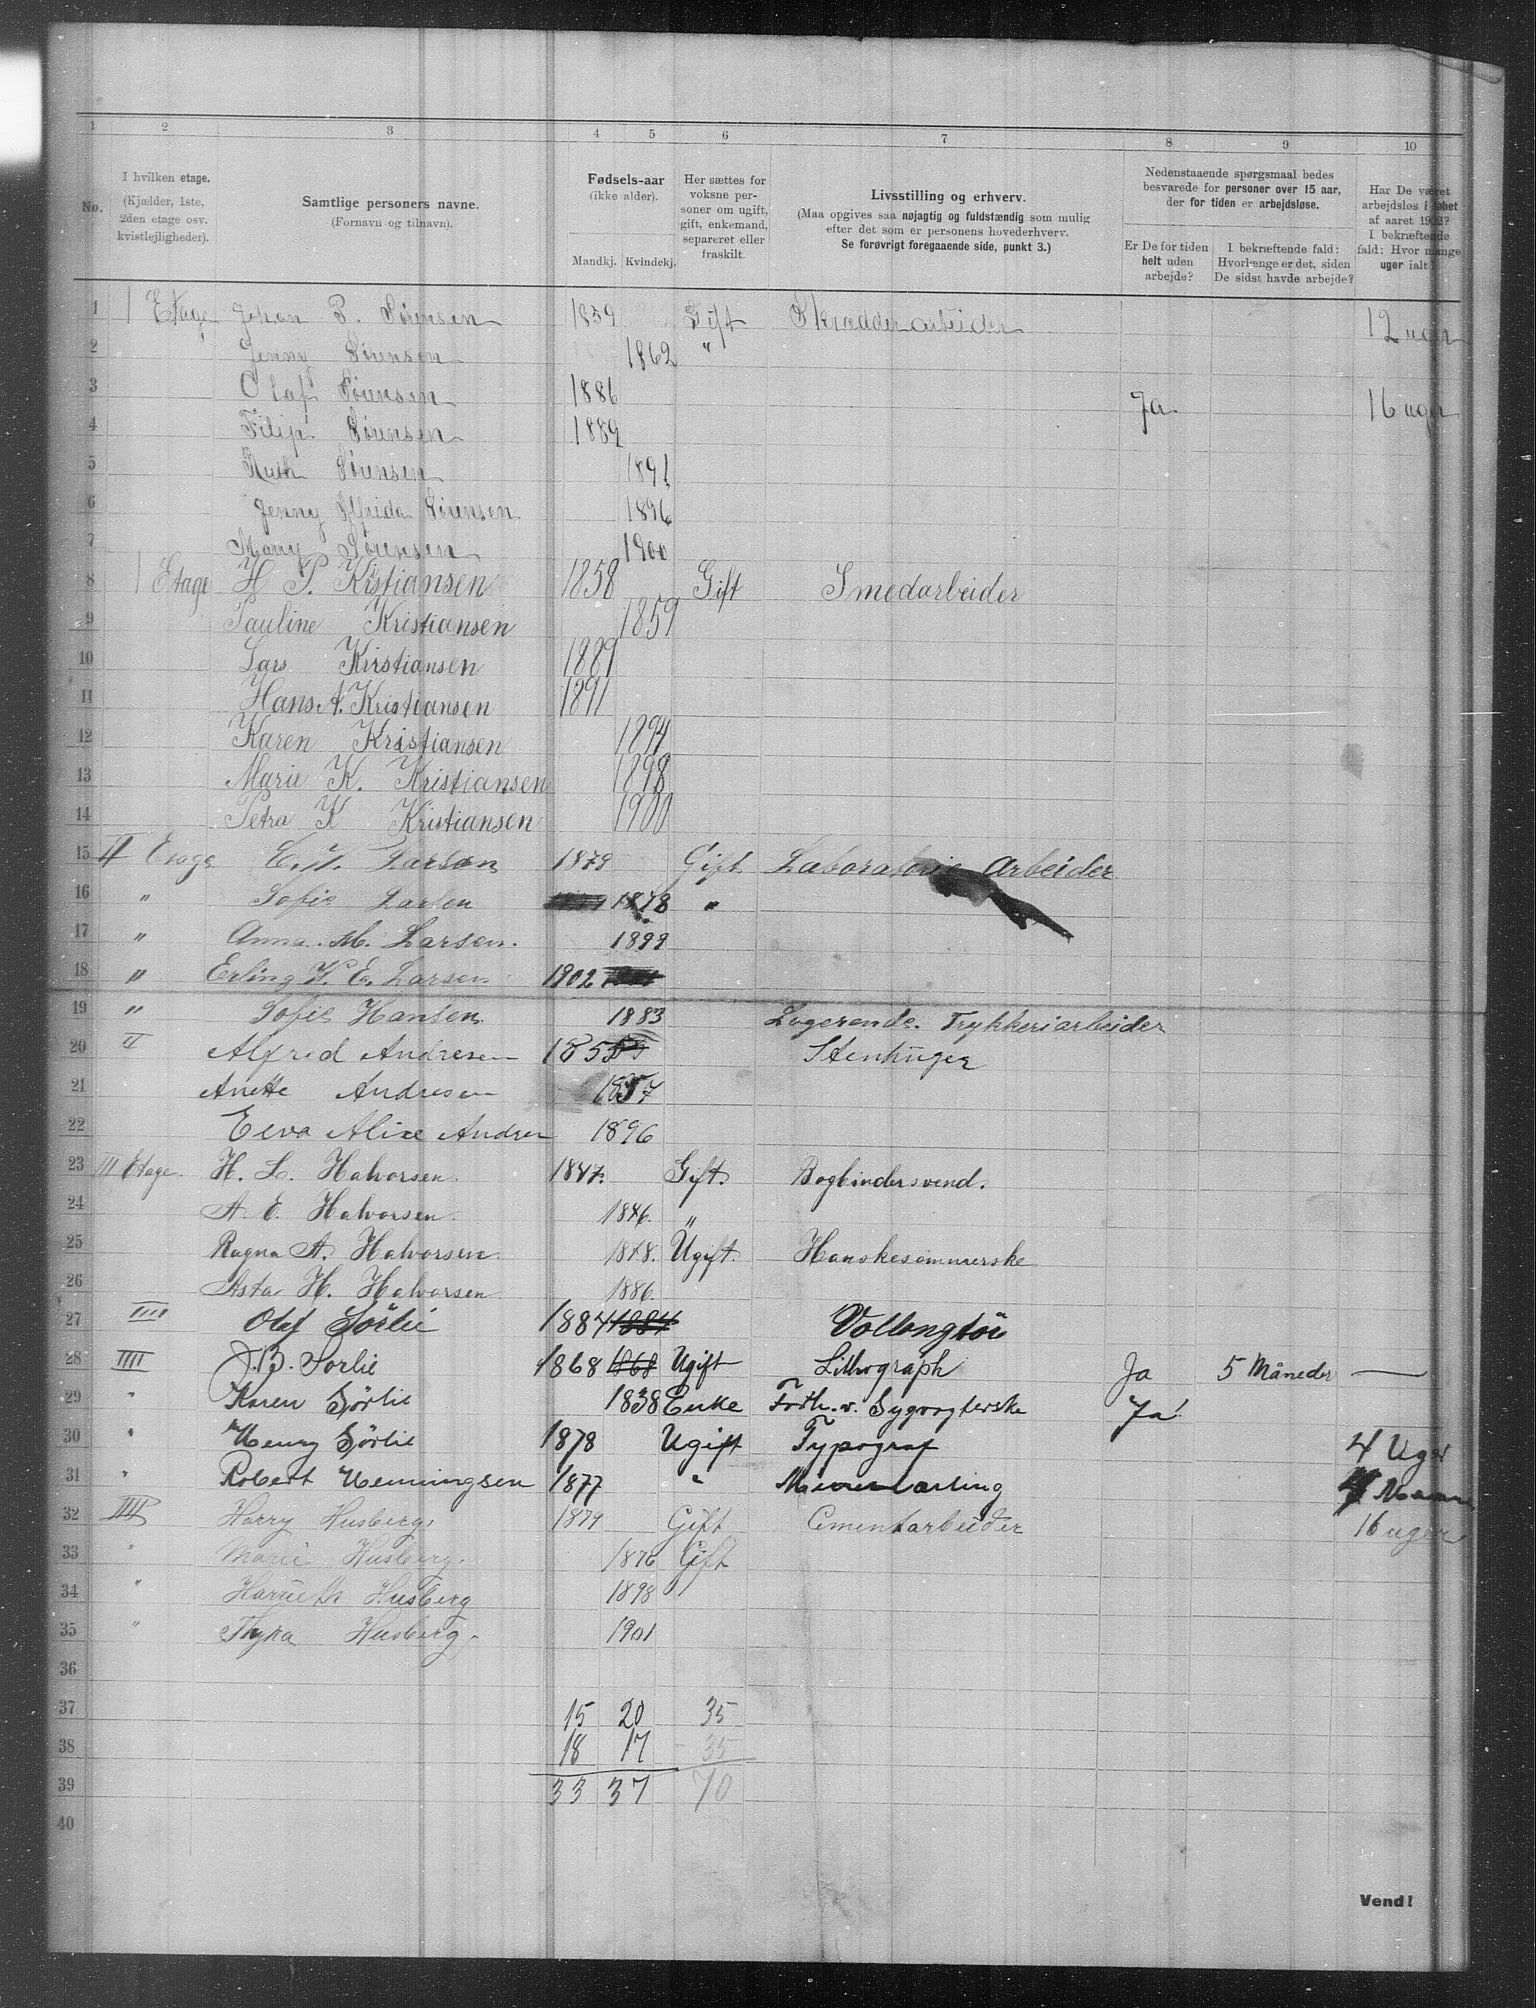 1 2 3 4 5 6 7 8 9 10
No.
I hvilken etage.
(Kjælder, 1ste,
2den etage osv.
kvistlejligheder).
Samtlige personers navne.
(Fornavn og tilnavn).
Fødsels-aar
(ikke alder).
Mandkj. Kvindekj.
Her sættes for
voksne per-
soner om ugift,
gift, enkemand,
separeret eller
fraskilt.
Livsstilling og erhverv.
(Maa opgives saa nøjagtig og fuldstændig som mulig
efter det som er personens hovederhverv.
Se forøvrigt foregaaende side, punkt 3.)
Nedenstaaende spørgsmaal bedes
besvarede for personer over 15 aar,
der for tiden er arbejdsløse.
Er De for tiden
helt uden
arbejde?
I bekræftende fald:
Hvorlænge er det, siden
De sidst havde arbejde?
Har De været
arbejdsløs i løbet
af aaret 1902?
I bekræftende
fald: Hvor mange
uger ialt?
1 1 Etage Johan P. Sørensen 1859 Gift Skrædderarbeider 12 uger
2 Jenny Sørensen 1862 "
3 Olaf Sørensen 1886 Ja 16 uger
4 Filip Sørensen 1889
5 Ruth Sørensen 1891
6 Jenny Alfrida Sørensen 1896
7 Mary Sørensen 1900
8 1 Etage H. P. Kristiansen 1858 Gift Smedarbeider
9 Pauline Kristiansen 1859
10 Lars Kristiansen 1889
11 Hans A. Kristiansen 1891
12 Karen Kristiansen 1894
13 Marie K. Kristiansen 1898
14 Petra K Kristiansen 1900
15 II Etage Larsen 1879 Gift Laboratorie Arbeider
16 " Sofie Larsen 1878 "
17 " Anna M. Larsen. 1899
18 " Erling K. E. Larsen 1902
19 " Sofie Hansen 1883 Logerende. Trykkeriarbeider
20 II Alfred Andresen 1855 Stenhuger
21 Anette Andresen 1857
22 Elva Alise Andresen 1896
23 III Etage. H. L. Halvorsen. 1847. Gift. Bogbindersvend.
24 A. E. Halvorsen. 1846. "
25 Ragna A. Halvorsen. 1878. Ugift. Hanskesømmerske
26 Asta H. Halvorsen 1886.
27 IIII Olaf Sørlie 1884 1884 Vollengtør
28 IIII J.B. Sørlie 1868 1868 Ugift Lithograph Ja 5 Måneder —
29 " Karen Sørlie 1838 Enke Forh. v. Sygvogterske Ja
30 " Henry Sørlie 1878 Ugift Typograf 4 Uger
31 " Robert Henningsen 1877 " 4
32 IIII Harry Husberg, 1879 Gift Cementarbeider 16 uger
33 " Marie Husberg. 1876 Gift
34 " Harrieth Husberg 1898
35 " Thyra Husberg. 1901
36
37 15 20 35
38 18 17 35
39 33 37 70
40
Vend!